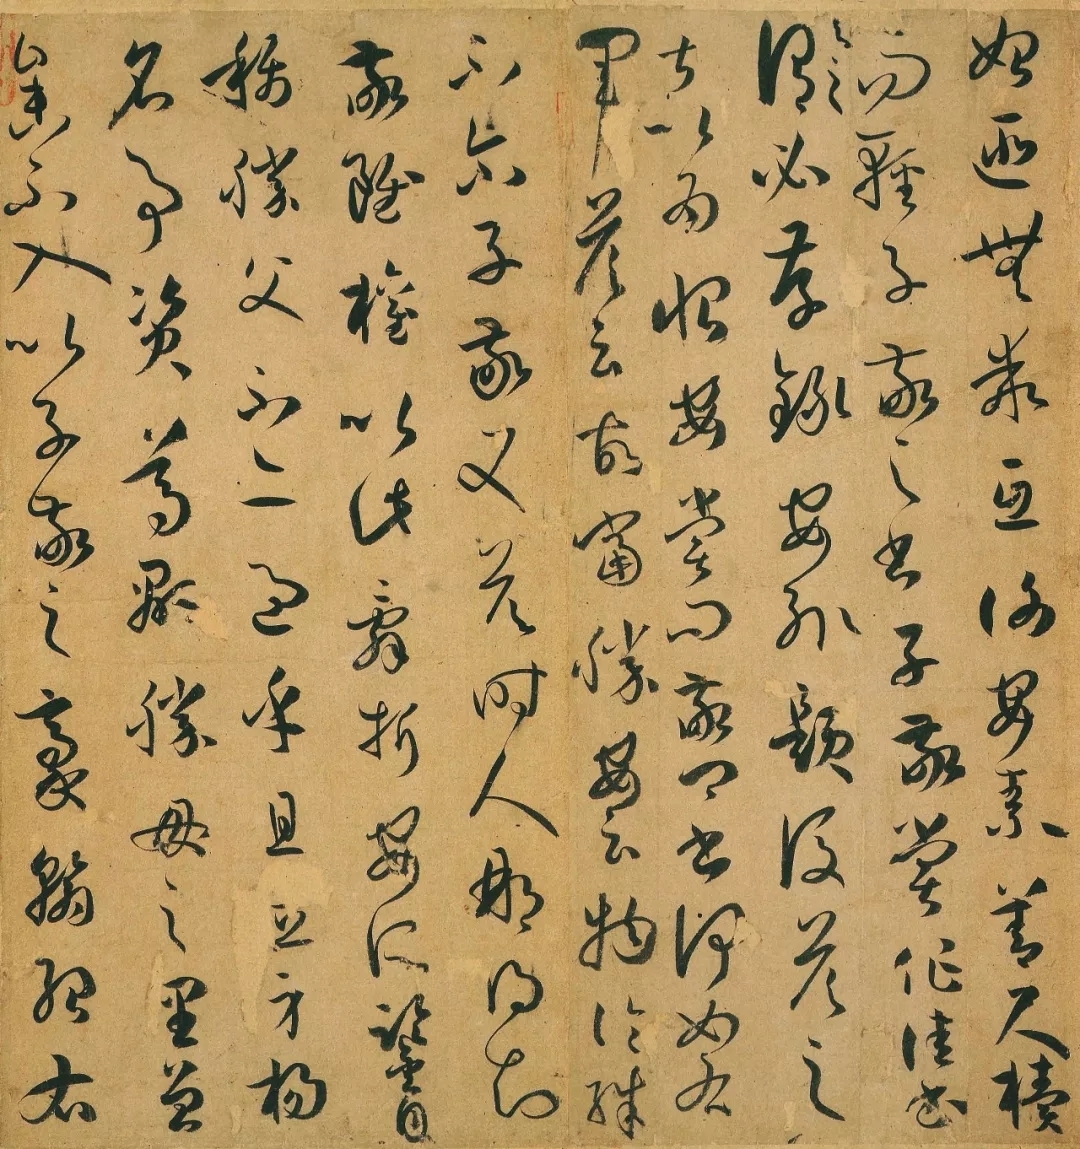 始匪無乖互謝安素善尺牘
而輕子敬之書子敬嘗作佳書
與之謂必存錄安輒題後答之
甚以為恨安嘗問敬卿書何如右
軍答云故當勝安云物論殊
不尔子敬又答時人那得知
敬雖權以此辭折安所鑒自
稱勝父不亦過乎且立身揚
名事資尊顯勝母之里曾
參不入以子敬之豪翰紹右